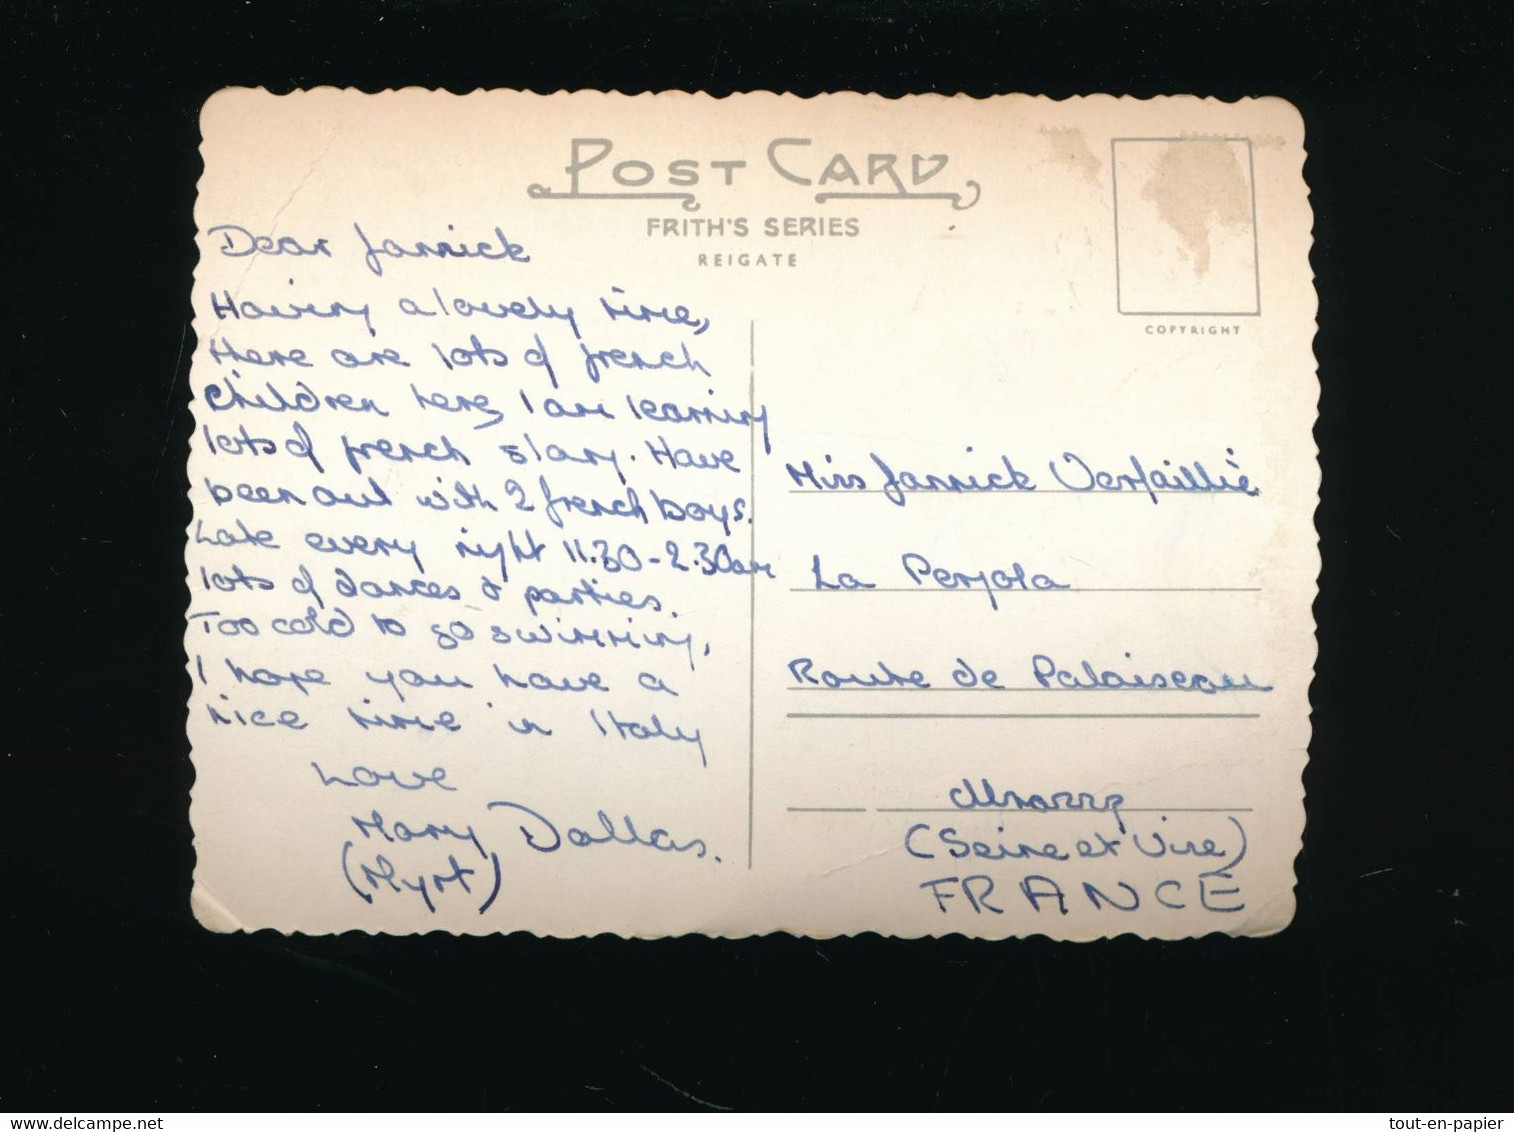 POST CARD
FRITH'S SERIES
REIGATE
COPYRIGHT
Dear Jannick
Having a lovely time,
there are lots of french
children here, I am learning
lots of french slang. Have
been out with 2 french boys.
Late every night 11.30-2.30am
lots of dances & parties.
Too cold to go swimming,
I hope you have a
nice time in Italy
Love
Mary Dallas.
(Myrt)
Miss Jannick Verfaillié
La Pergola
Route de Palaiseau
(Seine et Oise)
FRANCE
https://www.delcampe.net
tout-en-papier